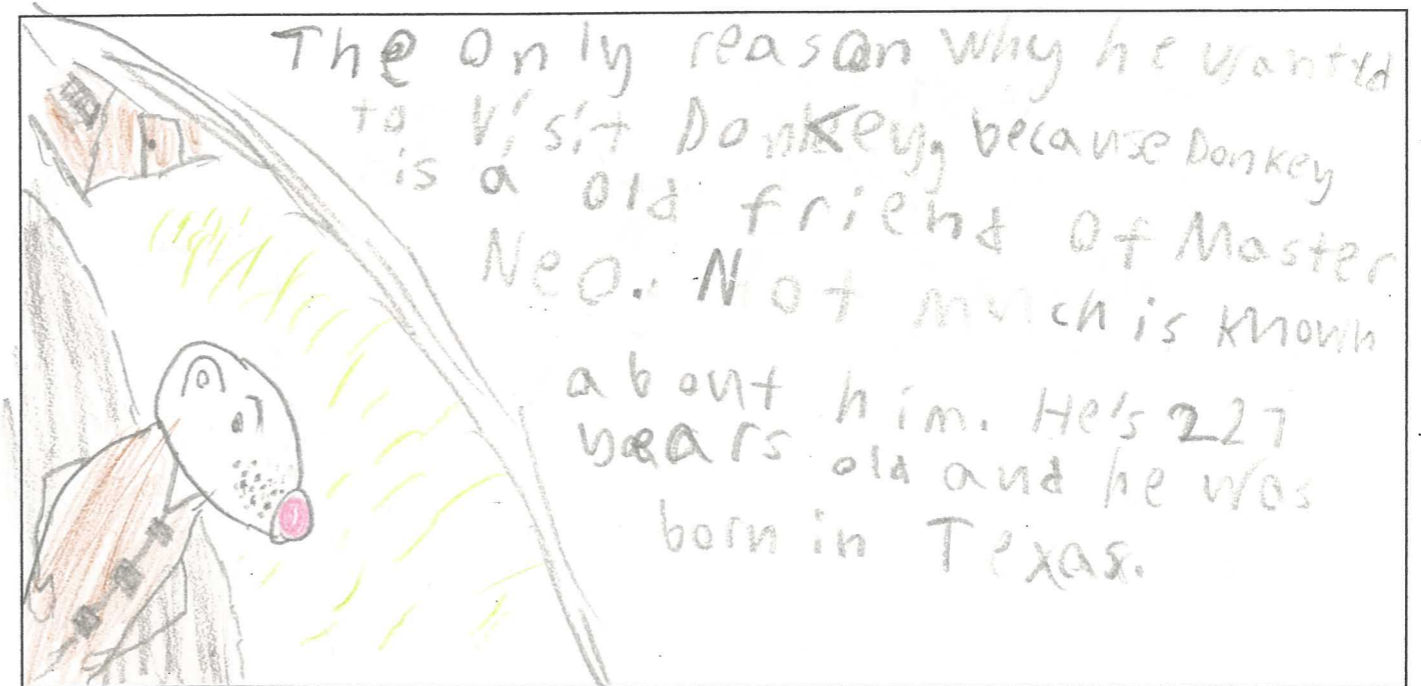 The Only reason why he wanted
to Visit Donkey, because Donkey
is a old friend Of Master
Neo. Not much is known
about him. He's 227
years old and he was
born in Texas.